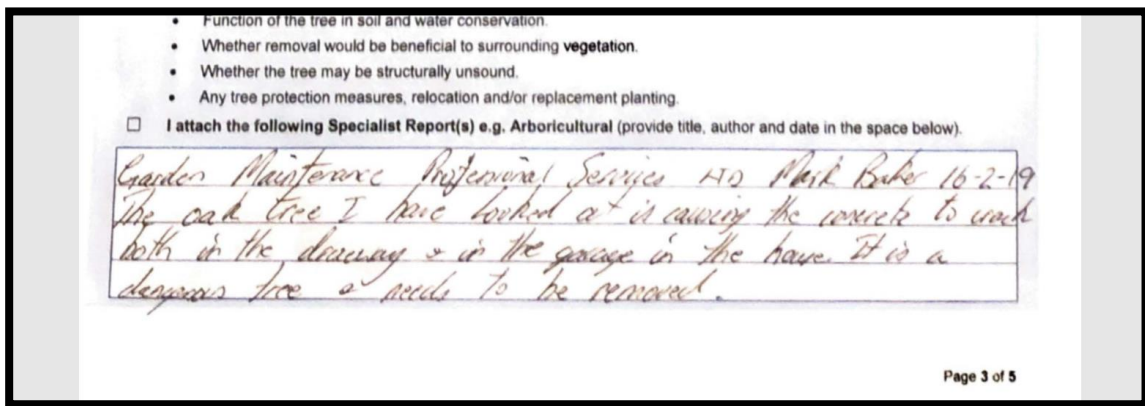 • Function of the tree in soil and water conservation.
• Whether removal would be beneficial to surrounding vegetation.
• Whether the tree may be structurally unsound.
• Any tree protection measures, relocation and/or replacement planting.
☐ I attach the following Specialist Report(s) e.g. Arboricultural (provide title, author and date in the space below).
Garden Maintenance Professional Services Mark Baker 16-2-19
The oak tree I have looked at is causing the concrete to crack
both in the driveway & in the garage in the house. It is a
dangerous tree & needs to be removed.
Page 3 of 5